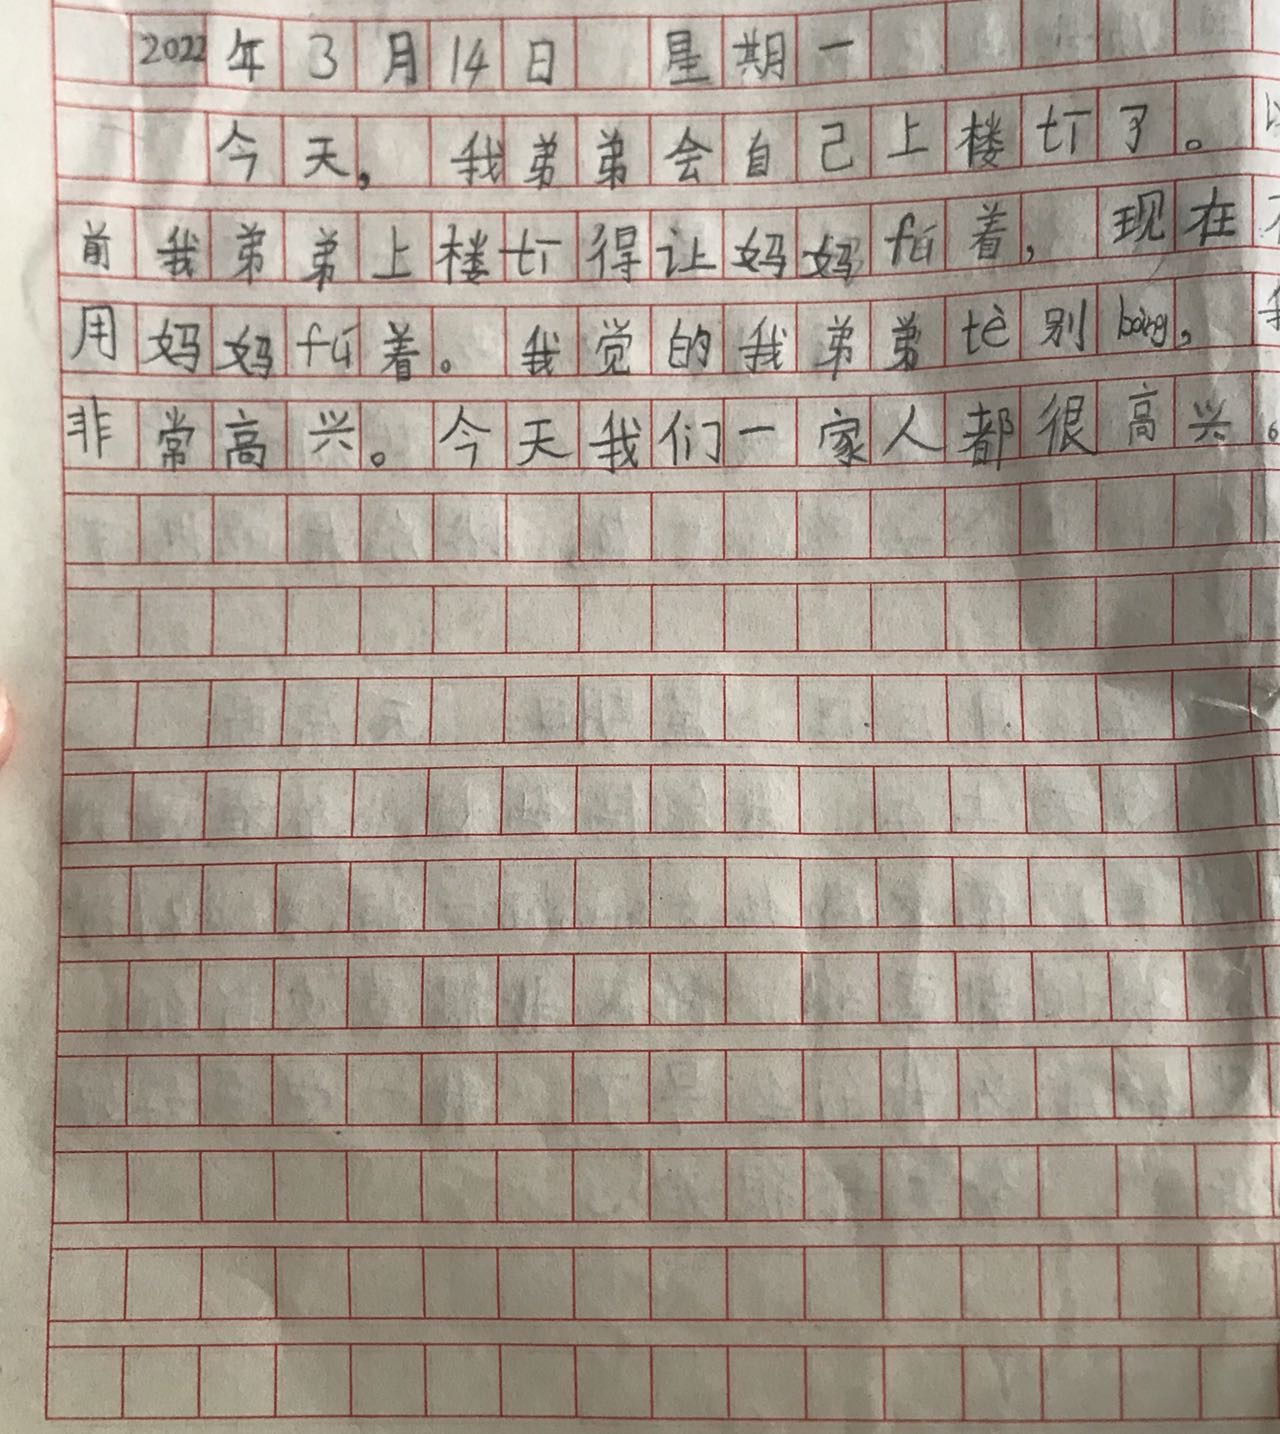 2022年3月14日 星期一
今天，我弟弟会自己上楼tī了。
前我弟弟上楼tī得让妈妈fú着，现在
用妈妈fú着。我觉的我弟弟tè别bàng，
非常高兴。今天我们一家人都很高兴。